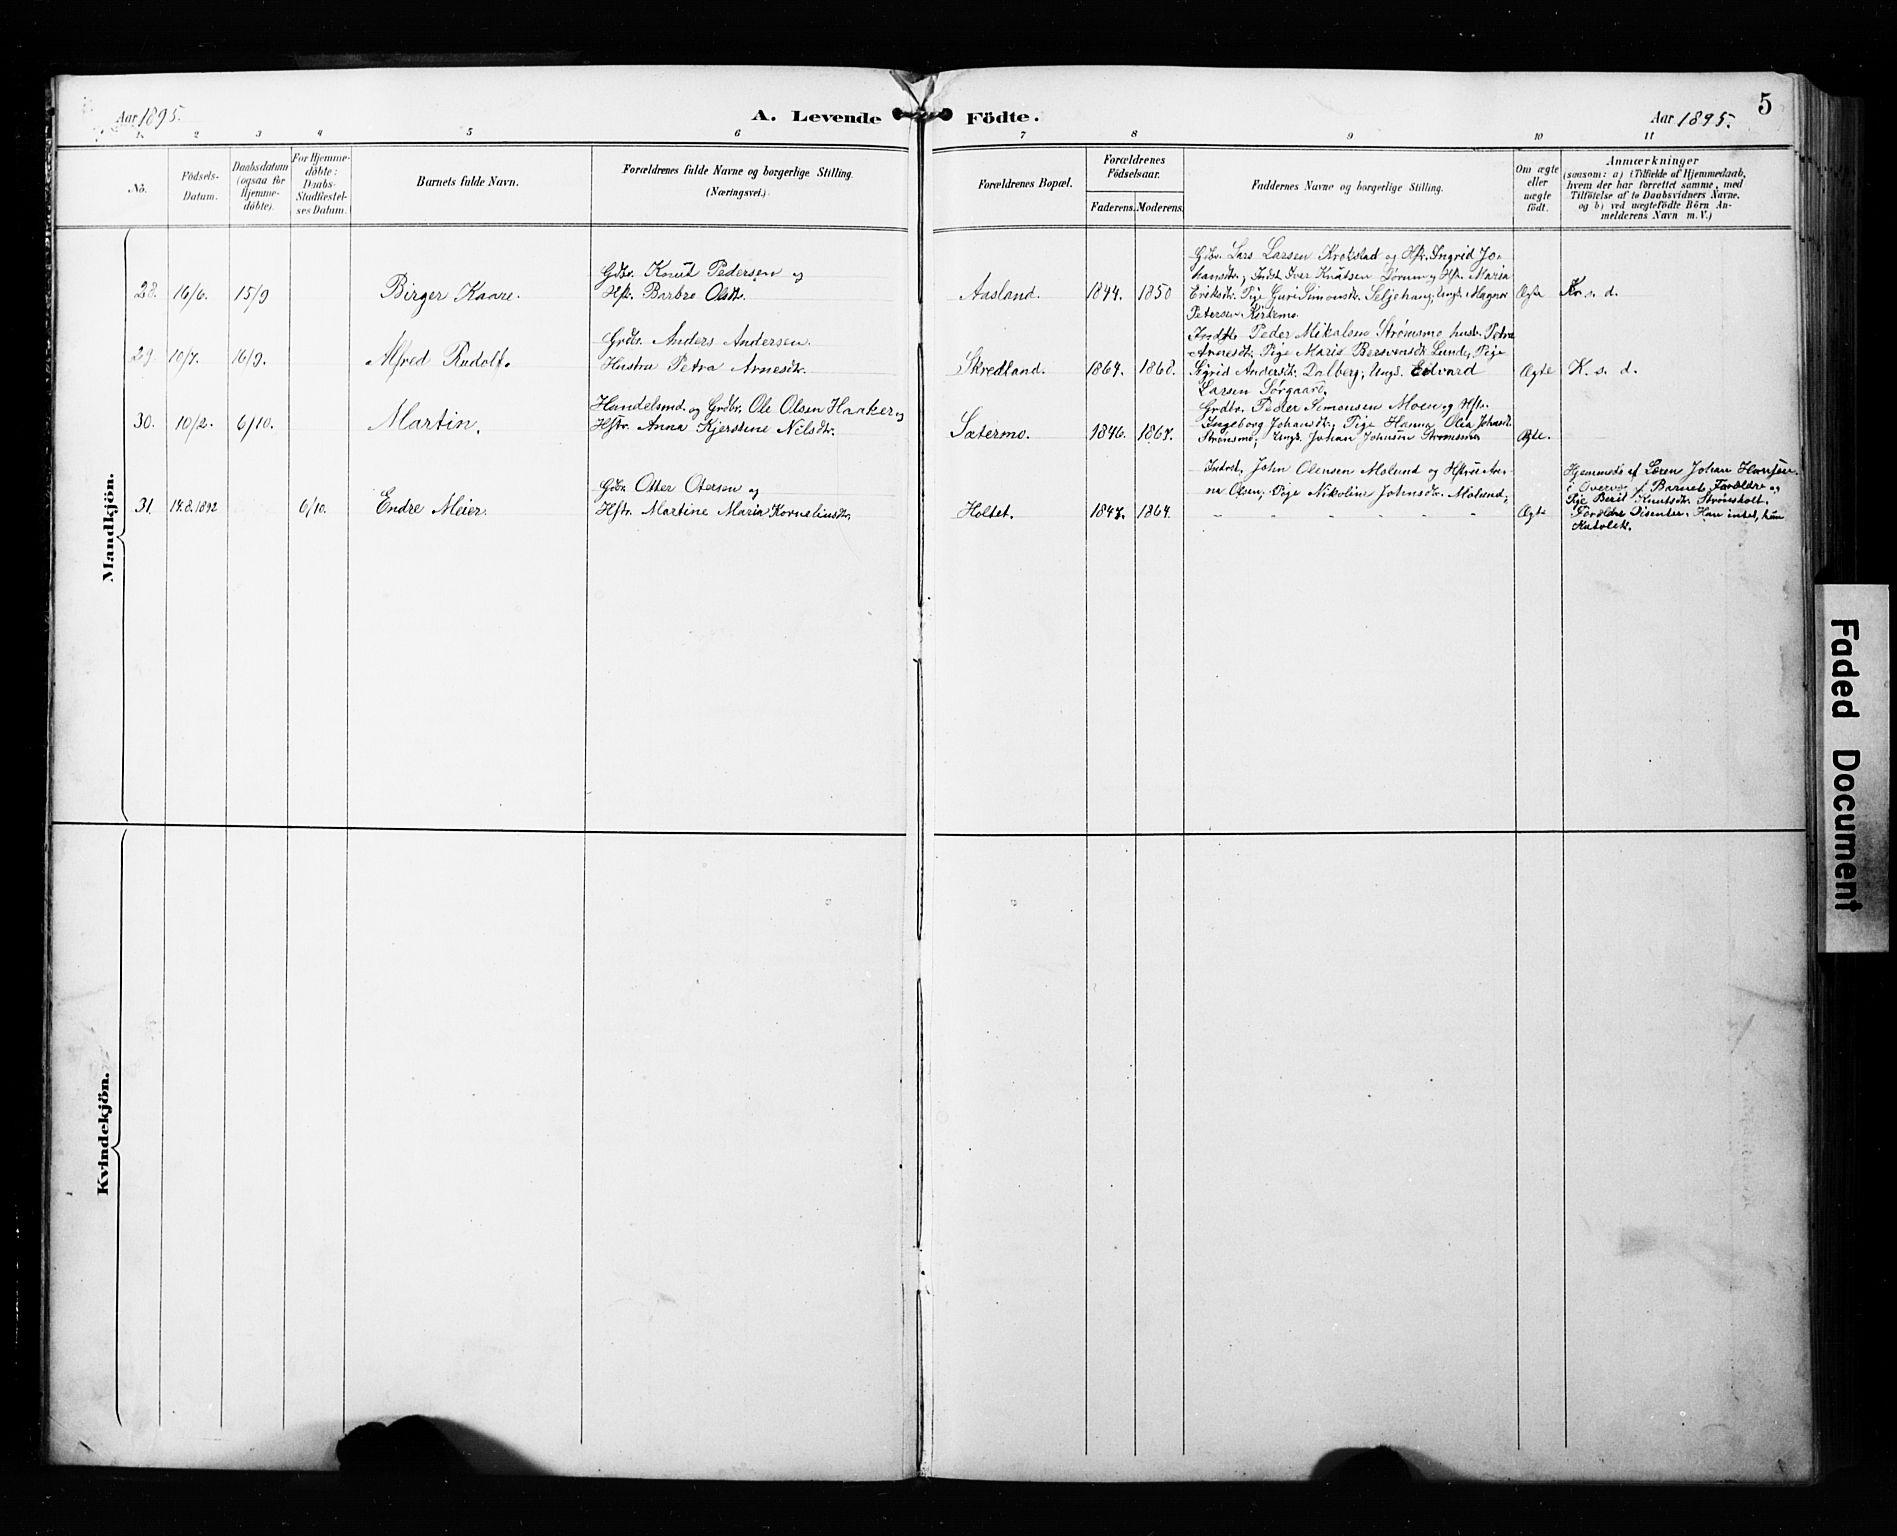 Aar 1895.
A. Levende Födte.
Aar 1895.
5
1.
2
3
4
5
6
7
8
9
10
11
No.
Födsels-
Datum.
Daabsdatum
(ogsaa for
Hjemme-
döbte).
For Hjemme-
döbte:
Daabs-
Stadfæstel-
ses Datum.
Barnets fulde Navn.
Forældrenes fulde Navne og borgerlige Stilling.
(Næringsvei.)
Forældrenes Bopæl.
Forældrenes
Födselsaar.
Faderens.
Moderens.
Faddernes Navne og borgerlige Stilling.
Om ægte
eller
uægte
født.
Anmærkninger
(saasom: a) i Tilfælde af Hjemmedaab,
hvem der har forrettet samme, med
Tilföielse af to Daabsvidners Navne,
og b) ved uægtefödte Börn An-
melderens Navn m. V.)
Mandkjön.
28. 16/6. 15/9 Birger Kaare.
Gdbr. Knut Pedersen og
Hst. Barbro Olsdtr.
Aasland. 1844. 1850
Gdbr. Lars Larsen Krokstad og Hst. Ingrid Jo-
hansdtr., Indst. Iver Knutsen og Hst. Maria
Eriksdtr. Pige Guri Simonsdtr. Seljehaug, Ungk. Magnus
Petersen Kirkemo.
Ægte K. s. d.
29. 10/7. 16/9. Alfred Rudolf.
Grdbr. Anders Andersen.
Hustru Petra Arnesdtr.
Skredland. 1864. 1868.
Indst. Peder Mikalsen Strømsmo, hust. Petra
Arnesdtr. Pige Maria Bersvensdtr. Lund, Pige
Sigrid Andersdtr. Dalberg; Ungk. Edvard
Larsen Sørgaard.
Ægte K. s. d.
30. 10/2. 6/10. Martin.
Handelsmd. og Grdbr. Ole Olsen Haaker og
Hstr. Anna Kjerstine Nilsdtr.
Sætermo. 1846. 1867.
Grdbr. Peder Simonsen Moen og Hstr.
Ingeborg Johansdtr., Pige Hanna Olea Johansdtr.
Strømsmo, Ungk. Johan Johnsen Strømsmo
Ægte.
31. 14.8.1892 6/10. Endre Meier.
Gdbr. Otter Otersen og
Hstr. Martine Maria Korneliusdtr.
Holtet. 1847. 1864.
Indrst. John Olensen Moland og Hstrue An-
ne Olsen; Pige Nikoline Johnsdtr. Moland;
Ægte
Hjemmed. af Læren Johan Hansen
i Overvær f Barnets Forældre og
Pige Berit Knutsdtr. Strømsholt.
Forældre Disenter. Han intet, hun
Katolsk.
Kvindekjön.
Faded Document